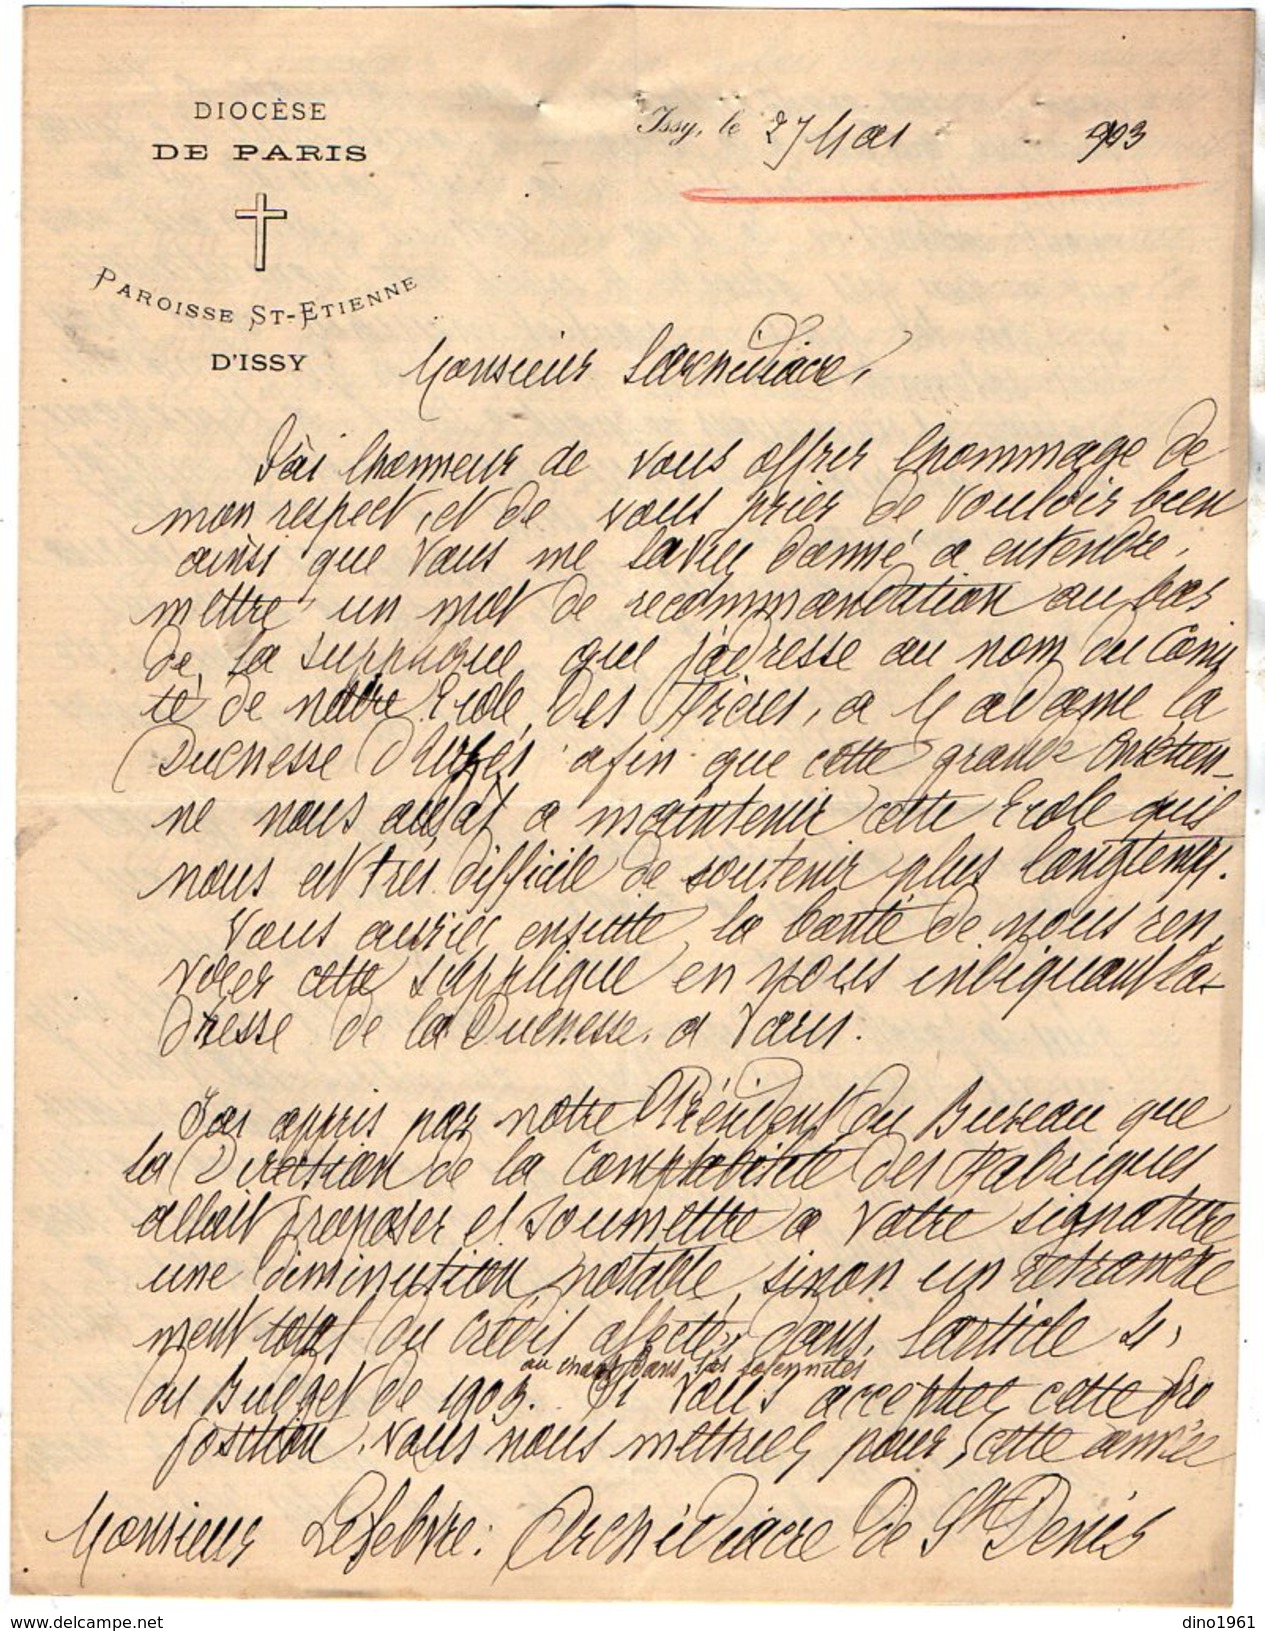 DIOCÈSE
DE PARIS
PAROISSE ST-ETIENNE
D'ISSY
Issy, le 27 Mai 903
Monsieur Larchidiacre,
J'ai lhonneur de vous offrir lhommage de
mon respect, et de vous prier de vouloir bien
ainsi que vous me lavez donné a entendre,
mettre un mot de recommandation au bas
de la supplique que jadresse au nom du Comi
té de notre Ecole des Frères, a Madame la
Duchesse d'Uzès afin que cette grande Chrétien_
ne nous aidât a maintenir cette Ecole quil
nous est très difficile de soutenir plus longtemps.
Vous auriez ensuite la bonté de nous ren
voier cette supplique en nous indiquant la-
dresse de la Duchesse, a Paris.
Jai appris par notre Président du Bureau que
la Direction de la Comptabilité des Fabriques
allait proposer et soumettre a votre signature
une diminution notable, sinon un retranche
ment total du crédit affecté dans larticle 4,
au chant dans les solennités
du Budget de 1903. Si vous acceptez cette pro
position, vous nous mettriez pour cette année
Monsieur Lefebvre: Archidiacre de St Denis
www.delcampe.net
dino1961